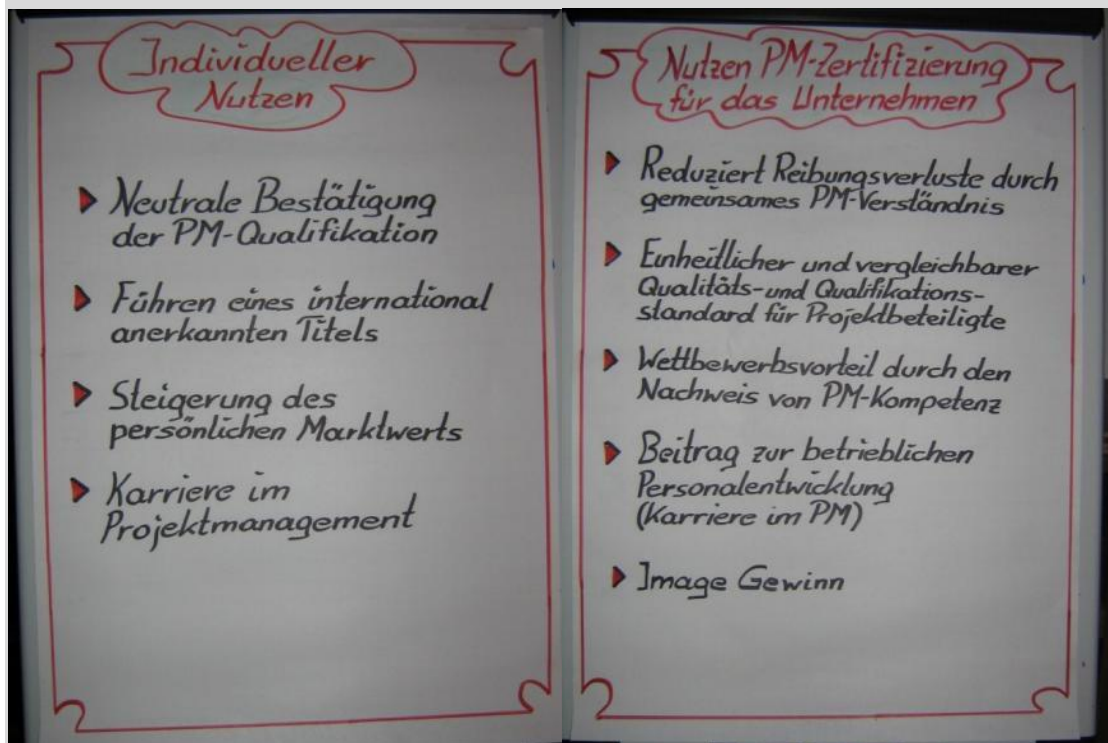 Individueller
Nutzen
Neutrale Bestätigung
der PM-Qualifikation
Führen eines international
anerkannten Titels
Steigerung des
persönlichen Marktwerts
Karriere im
Projektmanagement
Nutzen PM-Zertifizierung
für das Unternehmen
Reduziert Reibungsverluste durch
gemeinsames PM-Verständnis
Einheitlicher und vergleichbarer
Qualitäts- und Qualifikations-
standard für Projektbeteiligte
Wettbewerbsvorteil durch den
Nachweis von PM-Kompetenz
Beitrag zur betrieblichen
Personalentwicklung
(Karriere im PM)
Image Gewinn